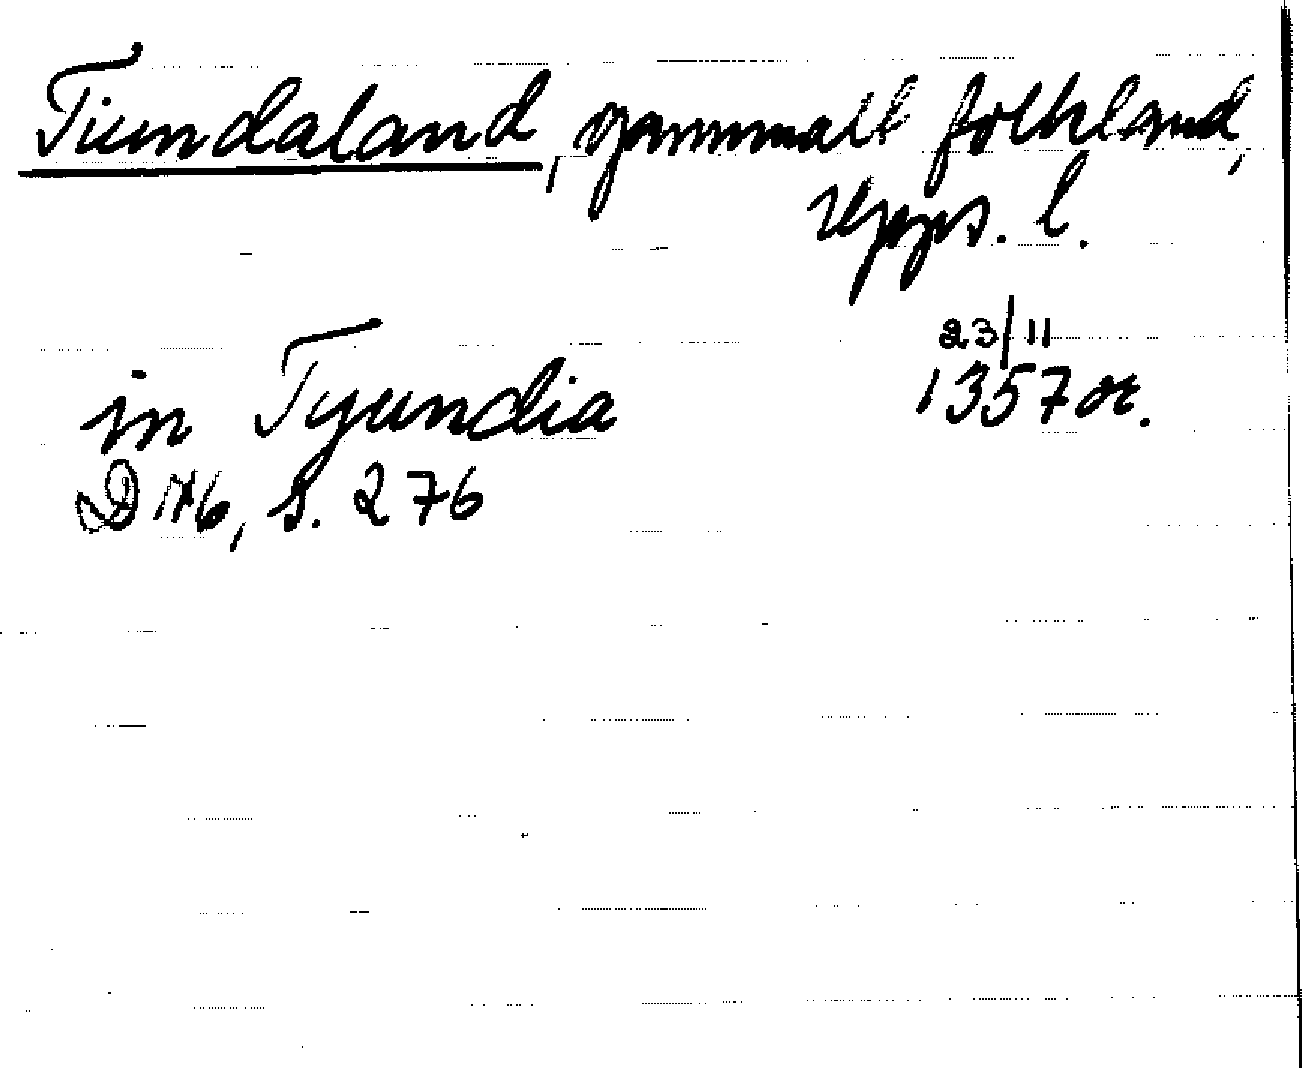 Tiundaland, gammalt folkland,
Upps. l.
23/11
in Tyundia 1357 or.
D 176, s. 276